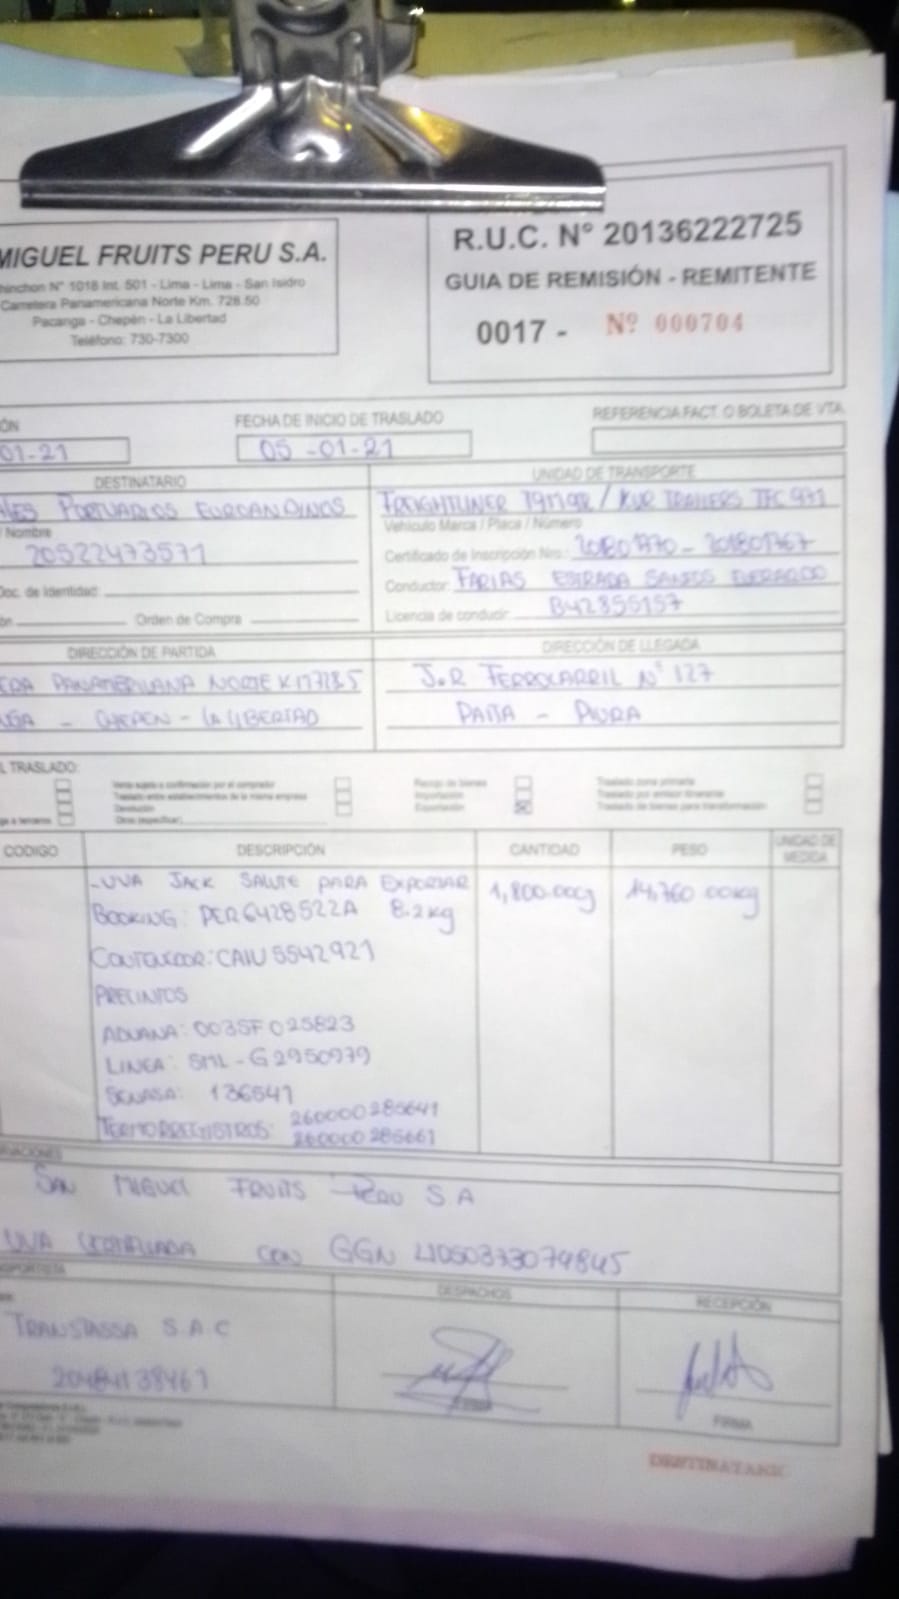 MIGUEL FRUITS PERU S.A.
hinchon N° 1018 Int. 501 - Lima - Lima - San Isidro
Carretera Panamericana Norte Km. 728.50
Pacanga - Chepén - La Libertad
Teléfono: 730-7300
R.U.C. N° 20136222725
GUIA DE REMISIÓN - REMITENTE
0017 - Nº 000704
IÓN
FECHA DE INICIO DE TRASLADO
REFERENCIA FACT. O BOLETA DE VTA.
01-21
05 -01-21
DESTINATARIO
UNIDAD DE TRANSPORTE
LES PORTUARIOS EUROANDINOS
FREIGHTLINER / KUR TRAILERS
Nombre
Vehículo Marca / Placa / Número
20522473571
Certificado de Inscripción Nro.:
Doc. de Identidad:
Conductor: FARIAS ESTRADA SANTOS EVERARDO
Orden de Compra
Licencia de conducir: B42855157
DIRECCIÓN DE PARTIDA
DIRECCIÓN DE LLEGADA
ERA PANAMERICANA NORTE
J.R FERROCARRIL N° 127
NGA - CHEPEN - LA LIBERTAD
PAITA - PIURA
L TRASLADO:
Venta sujeta a confirmación por el comprador
Traslado entre establecimientos de la misma empresa
Devolución
Otros (especificar)
ga a terceros
Recojo de bienes
Importación
Exportación
Traslado zona primaria
Traslado por emisor itinerante
Traslado de bienes para transformación
CODIGO
DESCRIPCIÓN
CANTIDAD
PESO
UNIDAD DE MEDIDA
- UVA JACK SALUTE PARA EXPORTAR
1,800.00cj
14,760.00kg
BOOKING: PER6428522A 8.2kg
CONTENEDOR: CAIU5542921
PRECINTOS
ADUANA: 003SF025823
LINEA: SML-G2950979
SENASA: 136541
TERMORREGISTROS: 260000285641
260000285661
VACIONES
SAN MIGUEL FRUITS PERU S A
UVA CERTIFICADA CON GGN 4050373074845
NSPORTISTA
DESPACHOS
RECEPCIÓN
TRANSTASSA S.A.C
20484138461
FIRMA
FIRMA
DESTINATARIO